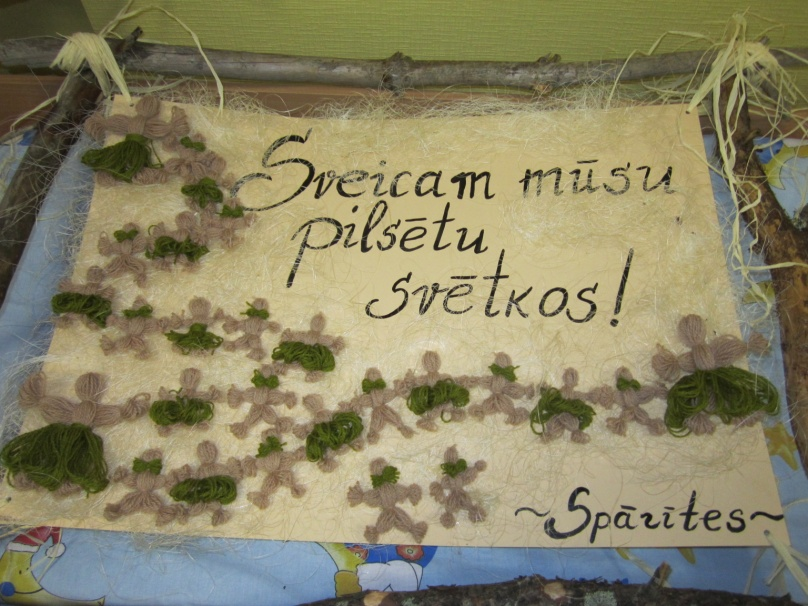 Sveicam mūsu
pilsētu
svētkos!
~Spārītes~